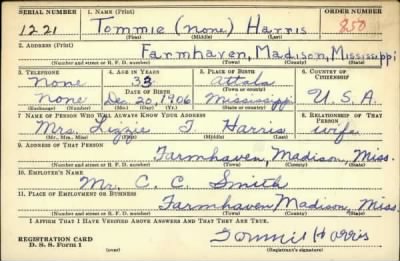 SERIAL NUMBER 1. NAME (Print) ORDER NUMBER
1221 Tommie (none) Harris 850
(First) (Middle) (Last)
2. ADDRESS (Print)
Farmhaven, Madison, Mississippi
(Number and street or R. F. D. number) (Town) (County) (State)
3. TELEPHONE 4. AGE IN YEARS 5. PLACE OF BIRTH 6. COUNTRY OF CITIZENSHIP
None 33 Attala
DATE OF BIRTH (Town or county)
None Dec. 20, 1906 Mississippi U.S.A.
(Exchange) (Number) (Mo.) (Day) (Yr.) (State or country)
7. NAME OF PERSON WHO WILL ALWAYS KNOW YOUR ADDRESS 8. RELATIONSHIP OF THAT PERSON
Mrs. Lizzie T. Harris wife
(Mr., Mrs., Miss) (First) (Middle) (Last)
9. ADDRESS OF THAT PERSON
Farmhaven, Madison, Miss.
(Number and street or R. F. D. number) (Town) (County) (State)
10. EMPLOYER'S NAME
Mr. C. C. Smith
11. PLACE OF EMPLOYMENT OR BUSINESS
Farmhaven Madison, Miss.
(Number and street or R. F. D. number) (Town) (County) (State)
I AFFIRM THAT I HAVE VERIFIED ABOVE ANSWERS AND THAT THEY ARE TRUE.
REGISTRATION CARD
D. S. S. Form 1
Tommie Harris
(Registrant's signature)